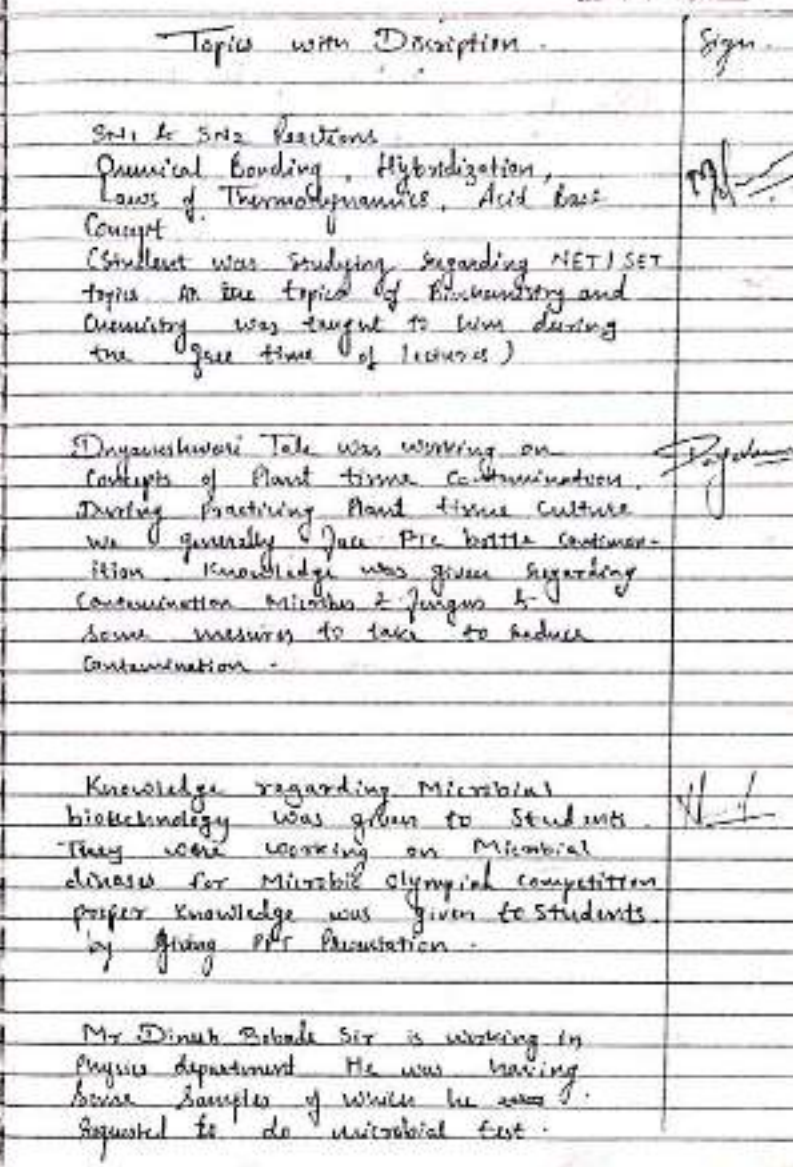 Topics with Discription. Sign.
SN1 & SN2 Reactions
Chemical Bonding, Hybridization,
Laws of Thermodynamics, Acid Base
Concept
(Student was studying regarding NET/SET
topics. All the topics of Biochemistry and
Chemistry was taught to him during
the free time of lectures)
Dnyaneshwari Tale was working on
Concepts of Plant tissue Contamination.
During Practicing Plant tissue Culture
we generally face PTC bottle Contamin-
ition. Knowledge was given regarding
Contamination Microbes & fungus &
some mesures to take to reduce
Contamination.
Knowledge regarding Microbial
biotechnology was given to Students.
They were working on Microbial
diseases for Microbic Olympiad Competition
proper Knowledge was given to Students
by giving PPT Presentation.
Mr Dinesh Bobade Sir is working in
Physics department He was having
Some Samples of which he
Requested to do microbial test.